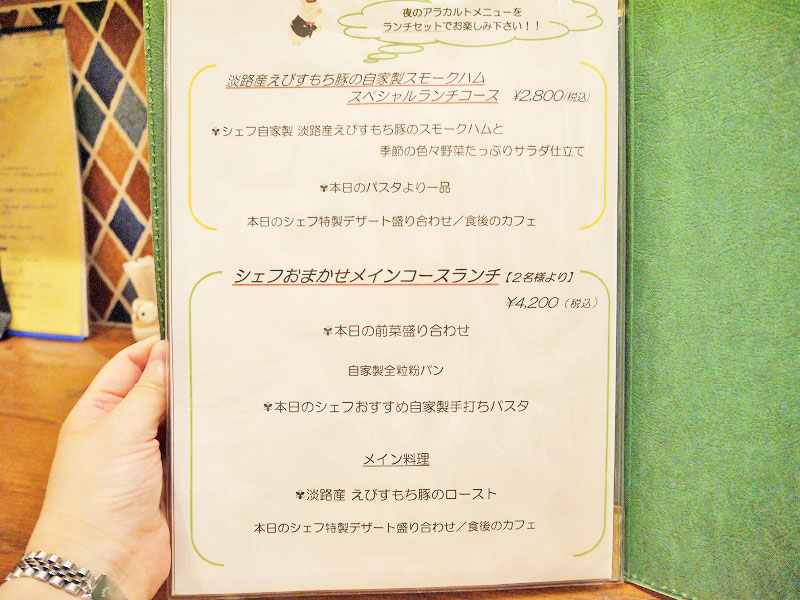 夜のアラカルトメニューを
ランチセットでお楽しみ下さい！！
淡路産えびすもち豚の自家製スモークハム
スペシャルランチコース ¥2,800(税込)
✾シェフ自家製 淡路産えびすもち豚のスモークハムと
季節の色々野菜たっぷりサラダ仕立て
✾本日のパスタより一品
本日のシェフ特製デザート盛り合わせ／食後のカフェ
シェフおまかせメインコースランチ【２名様より】
¥4,200（税込）
✾本日の前菜盛り合わせ
自家製全粒粉パン
✾本日のシェフおすすめ自家製手打ちパスタ
メイン料理
✾淡路産 えびすもち豚のロースト
本日のシェフ特製デザート盛り合わせ／食後のカフェ